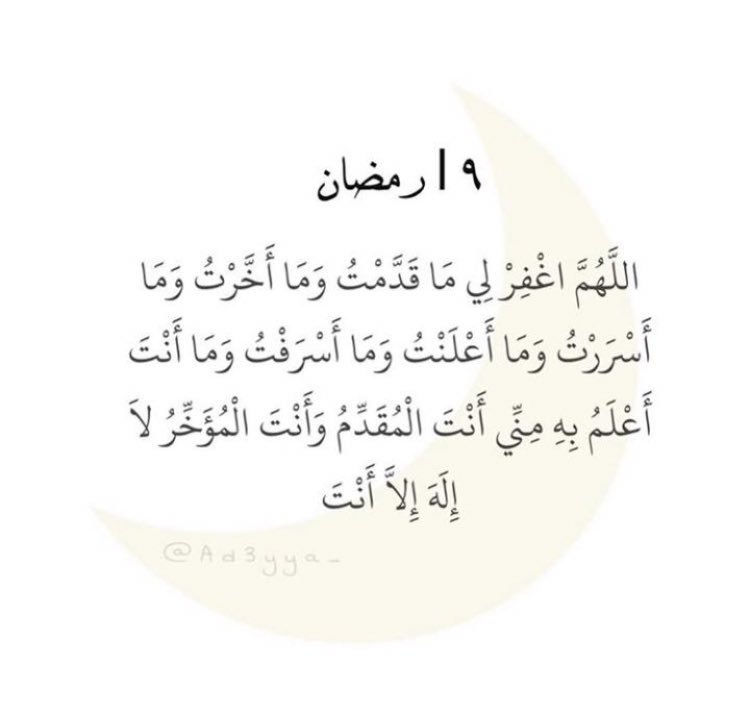 ٩ | رمضان
اللَّهُمَّ اغْفِرْ لِي مَا قَدَّمْتُ وَمَا أَخَّرْتُ وَمَا
أَسْرَرْتُ وَمَا أَعْلَنْتُ وَمَا أَسْرَفْتُ وَمَا أَنْتَ
أَعْلَمُ بِهِ مِنِّي أَنْتَ الْمُقَدِّمُ وَأَنْتَ الْمُؤَخِّرُ لاَ
إِلَهَ إِلاَّ أَنْتَ
@Ad3yya_